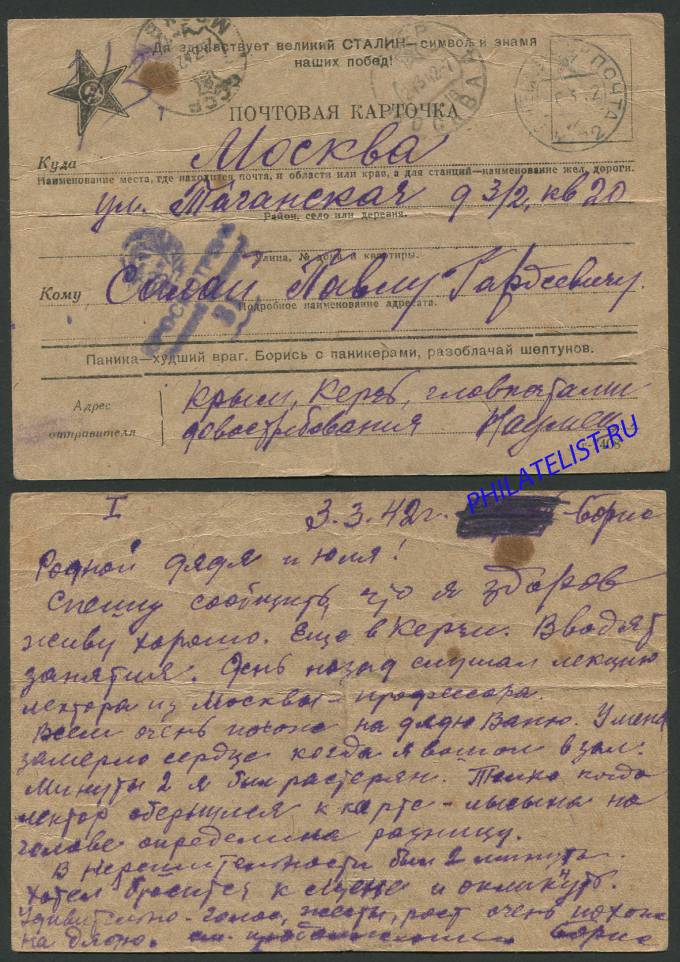 Да здравствует великий СТАЛИН—символ и знамя
наших побед!
ПОЧТОВАЯ КАРТОЧКА
МОСКВА
ПОЧТА
Куда Москва
Наименование места, где находится почта, и области или края, а для станций—наименование жел. дороги.
ул. Таганская д 3/2, кв 20
Район, село или деревня.
Улица, № дома и квартиры.
Кому Павлу Гордеевичу
Подробное наименование адресата.
Паника—худший враг. Борись с паникерами, разоблачай шептунов.
Адрес
отправителя
Крым, Керчь, главпочтамп
довостребования
PHILATELIST.RU
I 3.3.42г. Борис
Родной дядя и Юля!
Спешу сообщить, что я здоров
живу хорошо. Еще в Керчи. Вводят
занятия. День назад слушал лекцию
лектора из Москвы - профессора.
Всем очень похож на дядю Ваню. У меня
замерло сердце когда я вошол в зал.
Минуты 2 я был растерян. Только когда
лектор обернулся к карте - лысына на
голове определила разницу.
В нерешительности был 2 минуты.
Хотел бросится к сцене и окликнуть.
Удивительно - голос, жесты, рост очень похож
на дядю. см. Борис